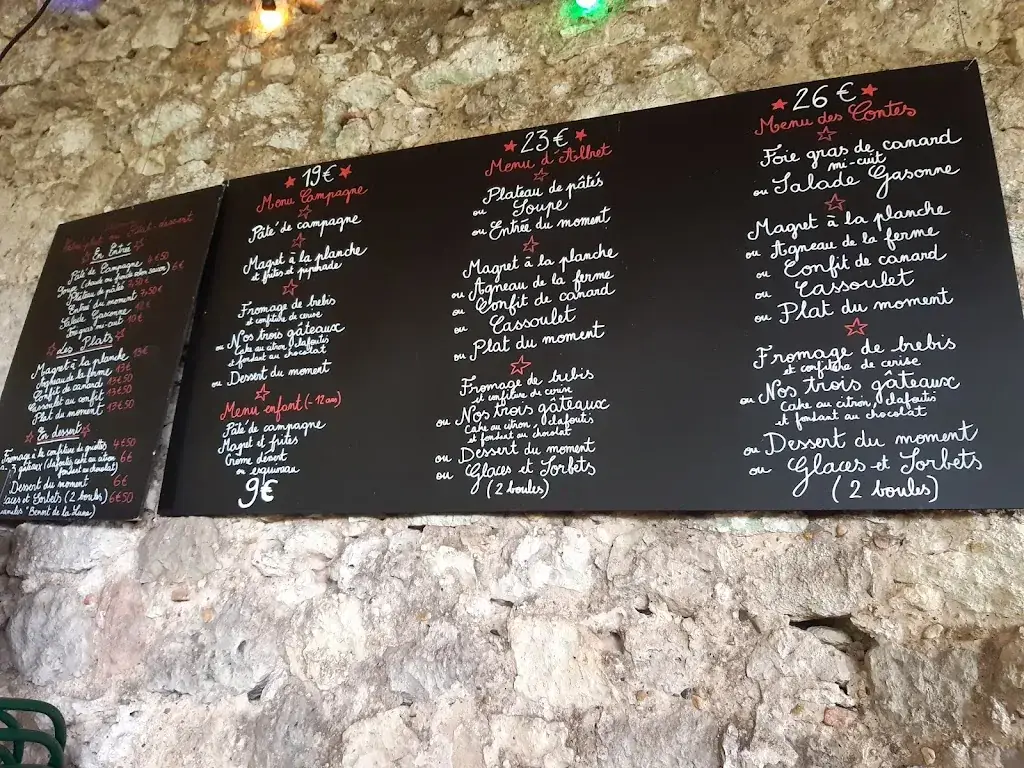 En Entrée
Pâté de Campagne 4€50
Plateau de pâtés
Entrée du moment
Salade Gasonne
Foie gras mi-cuit
Les Plats
Magret à la planche 13€
Agneau de la ferme 13€50
Confit de canard 13€50
Cassoulet au confit
Plat du moment 13€50
En dessert
Fromage à la confiture de griottes 4€50
3 gâteaux (clafoutis, cake au citron 6€
fondant au chocolat)
Dessert du moment 6€
Glaces et Sorbets (2 boules) 6€50
19€
Menu Campagne
Pâté de campagne
Magret à la planche
et frites et piperade
Fromage de brebis
et confiture de cerise
ou Nos trois gâteaux
Cake au citron, clafoutis
et fondant au chocolat
ou Dessert du moment
Menu enfant (- 12 ans)
Pâté de campagne
Magret et frites
Crème dessert
ou esquimau
9€
23€
Menu d'Albret
Plateau de pâtés
ou Soupe
ou Entrée du moment
Magret à la planche
ou Agneau de la ferme
ou Confit de canard
ou Cassoulet
ou Plat du moment
Fromage de brebis
et confiture de cerise
ou Nos trois gâteaux
Cake au citron, clafoutis
et fondant au chocolat
ou Dessert du moment
ou Glaces et Sorbets
(2 boules)
26€
Menu des Contes
Foie gras de canard
mi-cuit
ou Salade Gasonne
Magret à la planche
ou Agneau de la ferme
ou Confit de canard
ou Cassoulet
ou Plat du moment
Fromage de brebis
et confiture de cerise
ou Nos trois gâteaux
Cake au citron, clafoutis
et fondant au chocolat
ou Dessert du moment
ou Glaces et Sorbets
(2 boules)